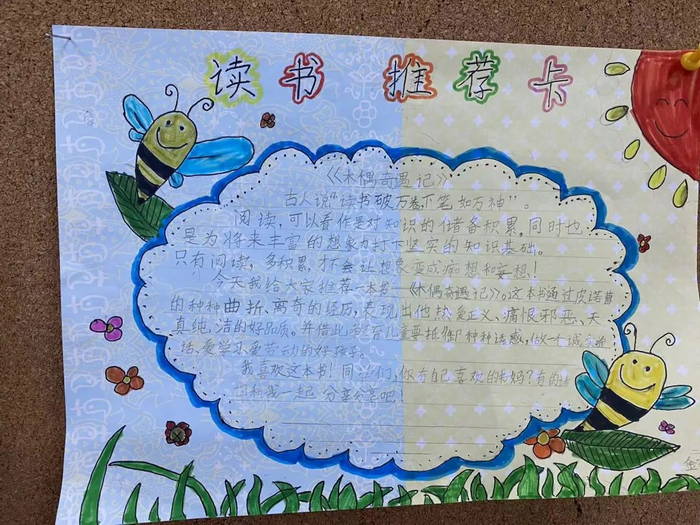 读书 推荐卡
《木偶奇遇记》
古人说“读书破万卷,下笔如万神”。
阅读,可以看作是对知识的储备积累,同时也,
是为将来丰富的想象力打下坚实的知识基础。
只有阅读,多积累,才不会让想象变成痴想和妄想!
今天我给大家推荐一本书——《木偶奇遇记》。这本书通过皮诺曹
的种种曲折、离奇的经历,表现出他热爱正义、痛恨邪恶、天
真纯洁的好品质,并借此教育儿童要抵御种种诱惑,做一个诚实听
话、爱学习、爱劳动的好孩子。
我喜欢这本书!同学们,你有自己喜欢的书妈?有的话
和我一起 分享 吧!